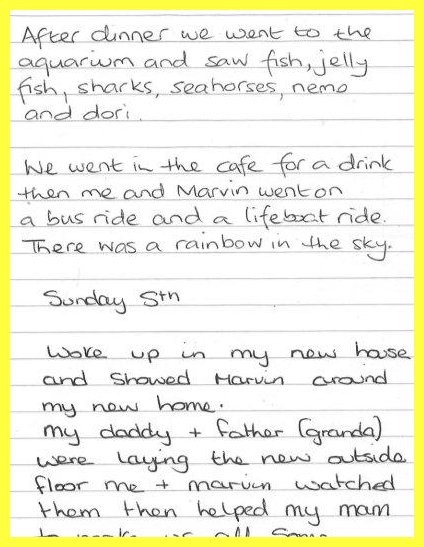 After dinner we went to the
aquarium and saw fish, jelly
fish, sharks, seahorses, nemo
and dori.
We went in the cafe for a drink
then me and Marvin went on
a bus ride and a lifeboat ride.
There was a rainbow in the sky.
Sunday 5th
Woke up in my new house
and showed Marvin around
my new home.
My daddy + father (granda)
were laying the new outside
floor me + marvin watched
them then helped my mam
to make us all some